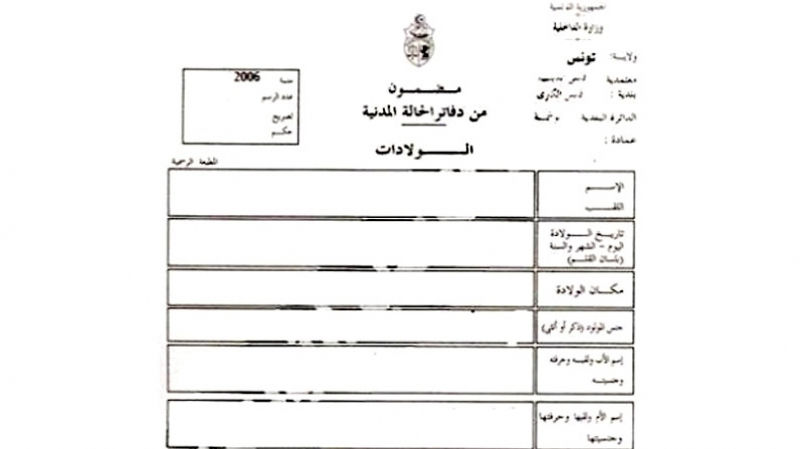 الجمهورية التونسية
وزارة الداخلية
ولاية: تونس
معتمدية
بلدية:
الدائرة البلدية
عمادة:
مضمون
من دفاتر الحالة المدنية
الولادات
سنة 2006
عدد الرسم
تصريح
حكم
المطبعة الرسمية
الإسم
اللقب
تاريخ الولادة
اليوم - الشهر والسنة
(بلسان القلم)
مكان الولادة
جنس المولود (ذكر أو أنثى)
إسم الأب ولقبه وحرفته
وجنسيته
إسم الأم ولقبها وحرفتها
وجنسيتها